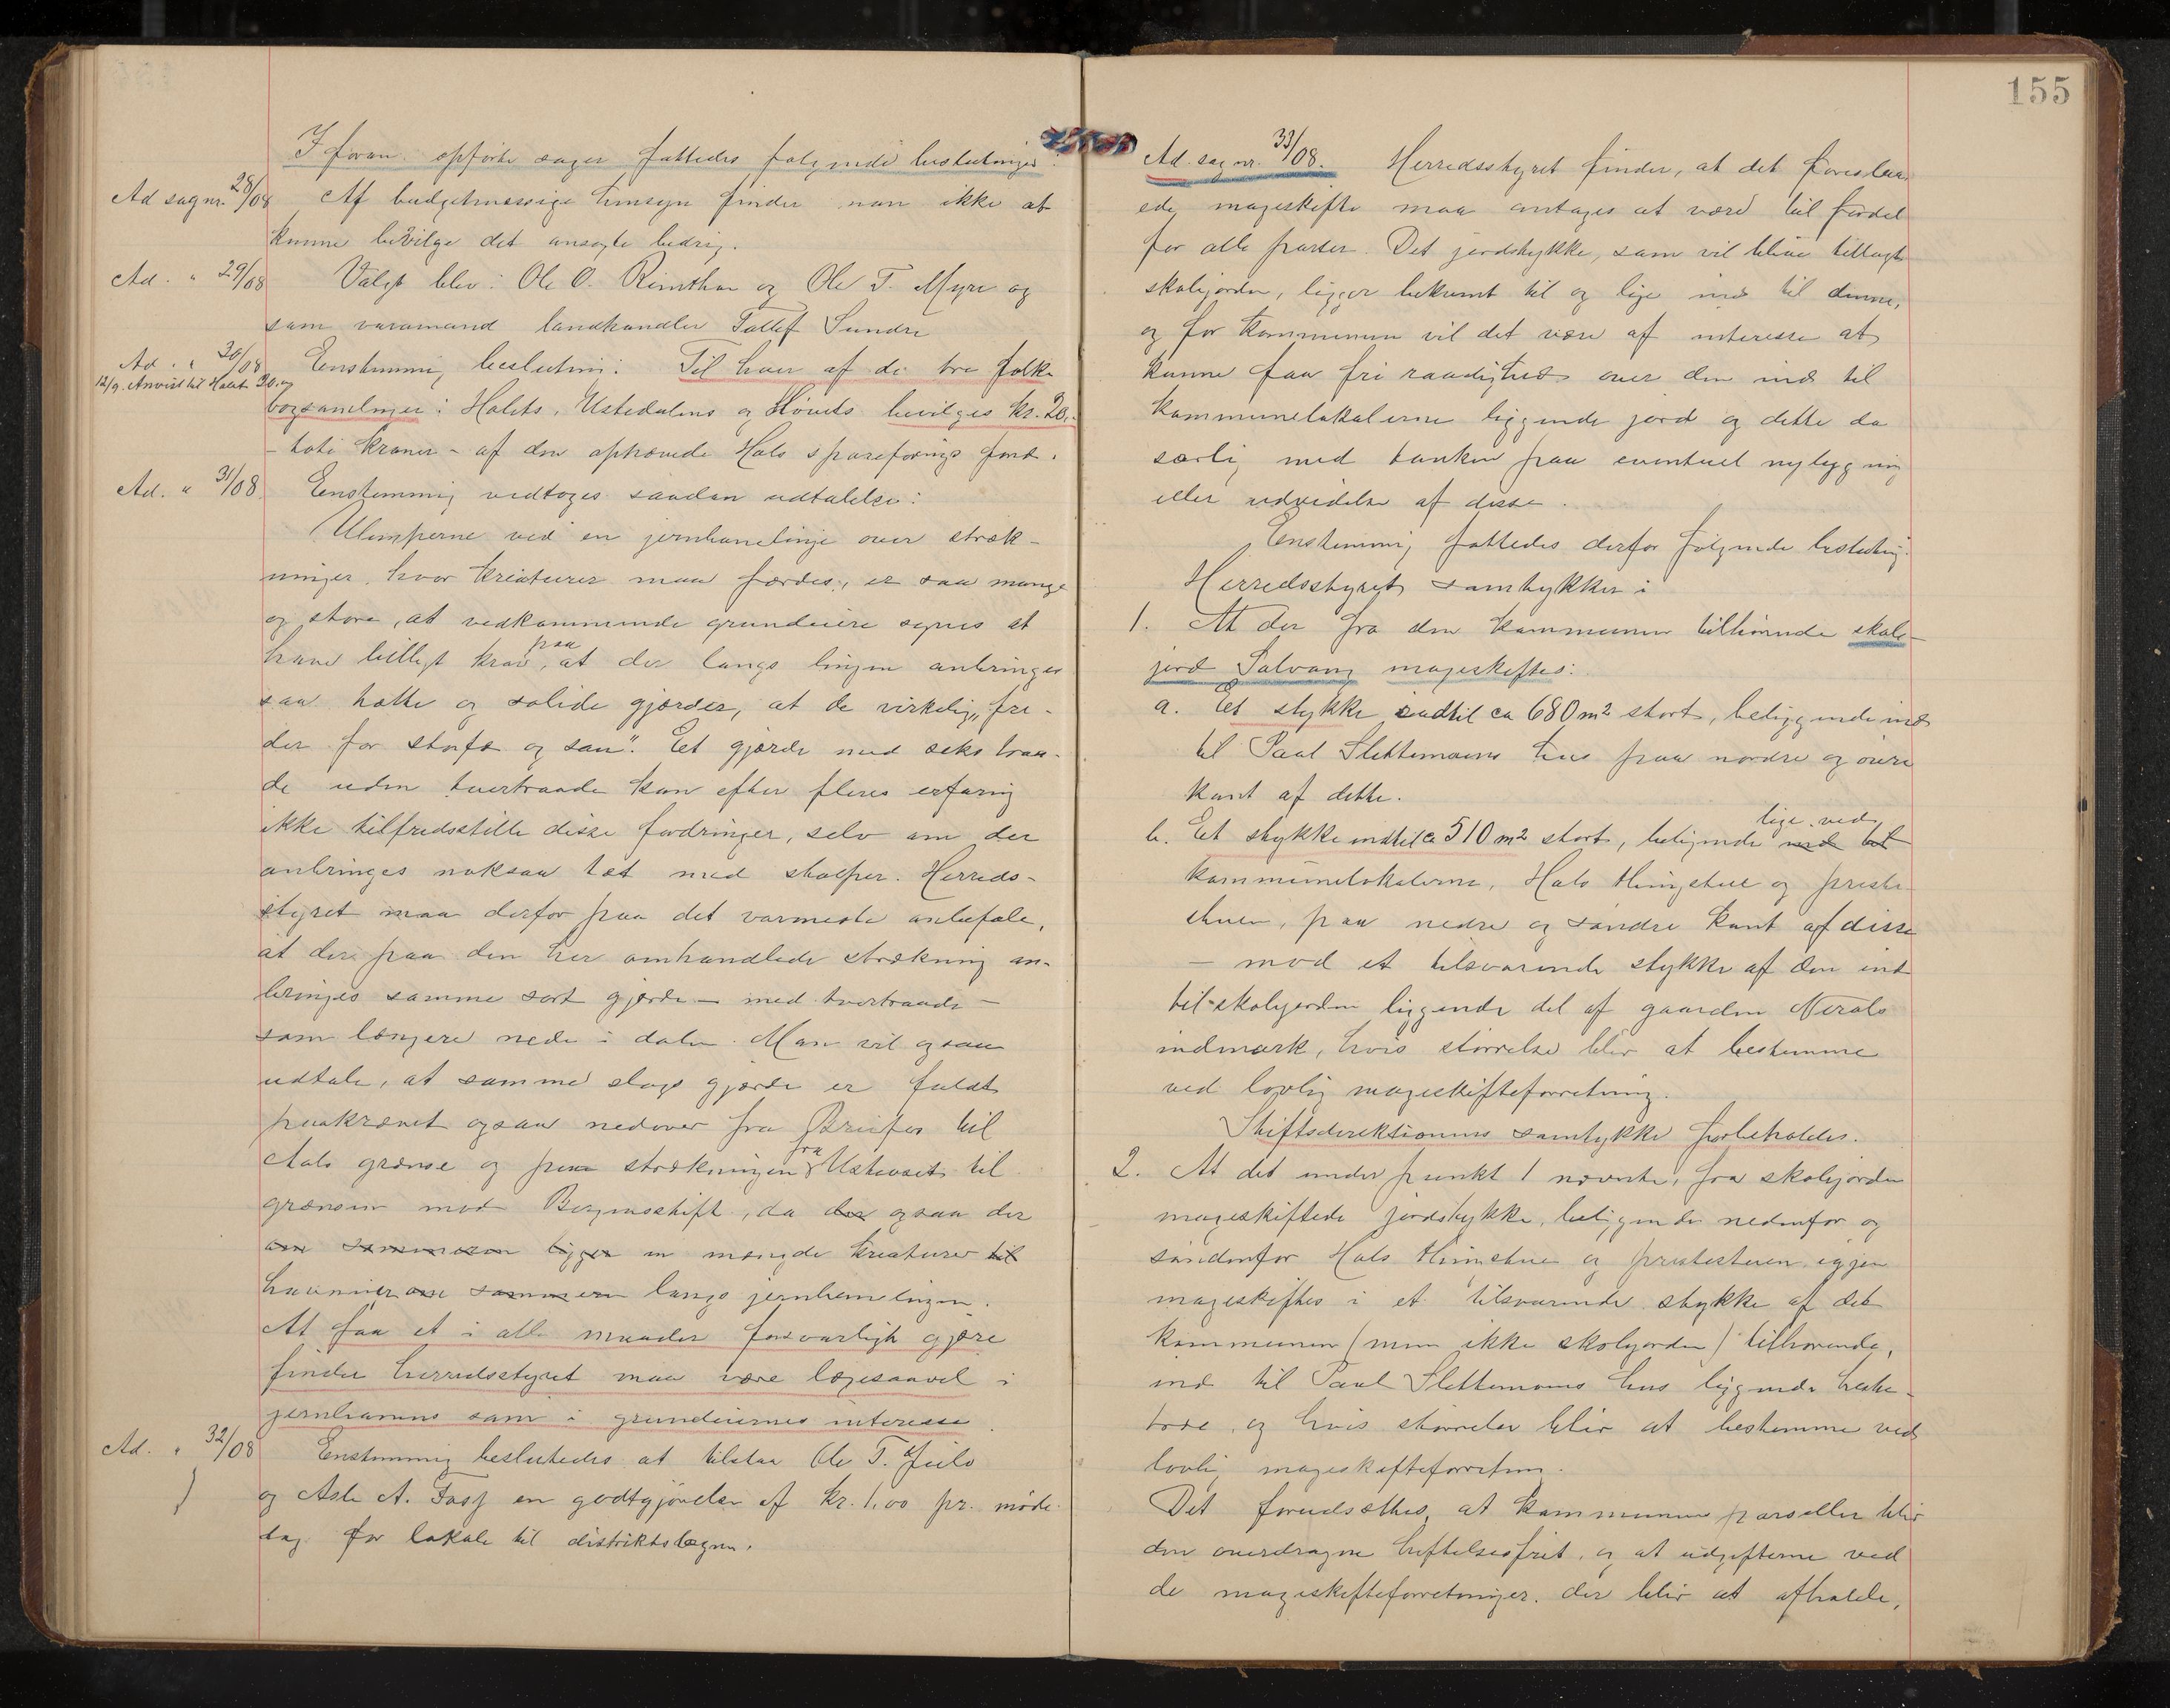 155
I foran opførte sager fattedes følgende beslutninger:
Ad sag nr. 28/08 Af budgetmæssige hensyn finder man ikke at
kunne bevilge det ansøgte bidrag.
Ad. " 29/08 Valgt blev: Ole O. Rimthun og Ole T. Myre og
som varamand landhandler Tollef Sundre
Ad. " 30/08 Enstemmig beslutning: Til hver af de tre folke
12/9. Anvist til Holet 20.
bogsamlinger: Holets, Ustedalens og Høvets bevilges kr. 20,-
- toti kroner - af den ophævede Hols spareforenings fond.
Ad. " 31/08 Enstemmig vedtoges saadan udtalelse:
Ulemperne ved en jernbanelinje over stræk-
ninger, hvor kreaturer maa færdes, er saa mange
og store, at vedkommende grundeiere synes at
have billigt krav paa, at der langs linjen anbringes
saa tætte og solide gjærder, at de virkelig „fre-
der for storfæ og sau". Et gjærde med seks traa-
de uden tvertraade kan efter fleres erfaring
ikke tilfredsstille disse fordringer, selv om der
anbringes noksaa tæt med stolper. Herreds-
styret maa derfor paa det varmeste anbefale,
at der paa den her omhandlede strækning an-
bringes samme sort gjærde - med tvertraade -
som længere nede i dalen. Man vil ogsaa
udtale, at samme slags gjærde er fuldt
paakrævet ogsaa nedover fra til
Aals grænse og paa strækningen fra Ustevset til
grænsen mod Bergensstift, da der ogsaa der
om sommeren ligger en mængde kreaturer til
havning om sommeren langs jernbanelinjen.
At faa et i alle maader forsvarligt gjære
finder herredsstyret maa være ligesaavel i
jernbanens som i grundeiernes interesse.
Ad. " 32/08 Enstemmig besluttedes at tilstaa Ole T. Geilo
og Asle A. en godtgjørelse af kr. 1,00 pr. møde-
dag for lokale til distriktslægen.
Ad. sag nr. 33/08. Herredsstyret finder, at det foreslaa-
ede mageskifte maa antages at være til fordel
for alle parter. Det jordstykke, som vil blive tillagt
skolejorden, ligger bekvemt til og lige ind til denne,
og for kommunen vil det være af interesse at
kunne faa fri raadighed over den ind til
kommunelokalerne liggende jord og dette da
særlig med tanken paa eventuel nybygning
eller udvidelse af disse.
Enstemmig fattedes derfor følgende beslutning:
Herredsstyret samtykker i
1. At der fra den kommunen tilhørende skole-
jord Solvang mageskiftes:
a. Et stykke indtil ca 680 m² stort, beliggende ind
til Paal Slettemoens hus paa nordre og øvre
kant af dette.
b. Et stykke indtil ca 510 m² stort, beliggende lige ved ind til
kommunelokalerne, Hols thingstue og preste-
stuen, paa nedre og søndre kant af disse
- mod et tilsvarende stykke af den ind
til skolejorden liggende del af gaarden Nerals
indmark, hvis størrelse blir at bestemme
ved lovlig mageskifteforretning.
Stiftsdirektionens samtykke forbeholdes.
2. At det under punkt 1 nævnte, fra skolejorden
mageskiftede jordstykke, beliggende nedenfor og
søndenfor Hols thingstue og prestestuen igjen
mageskiftes i et tilsvarende stykke af det
kommunen (men ikke skolejorden) tilhørende,
ind til Paal Slettemoens hus liggende heste-
trøe, og hvis størrelse blir at bestemme ved
lovlig mageskifteforretning.
Det forudsættes, at kommunens parseller blir
den overdragne heftelsesfrit, og at udgifterne ved
de mageskifteforretninger, der blir at afholde,